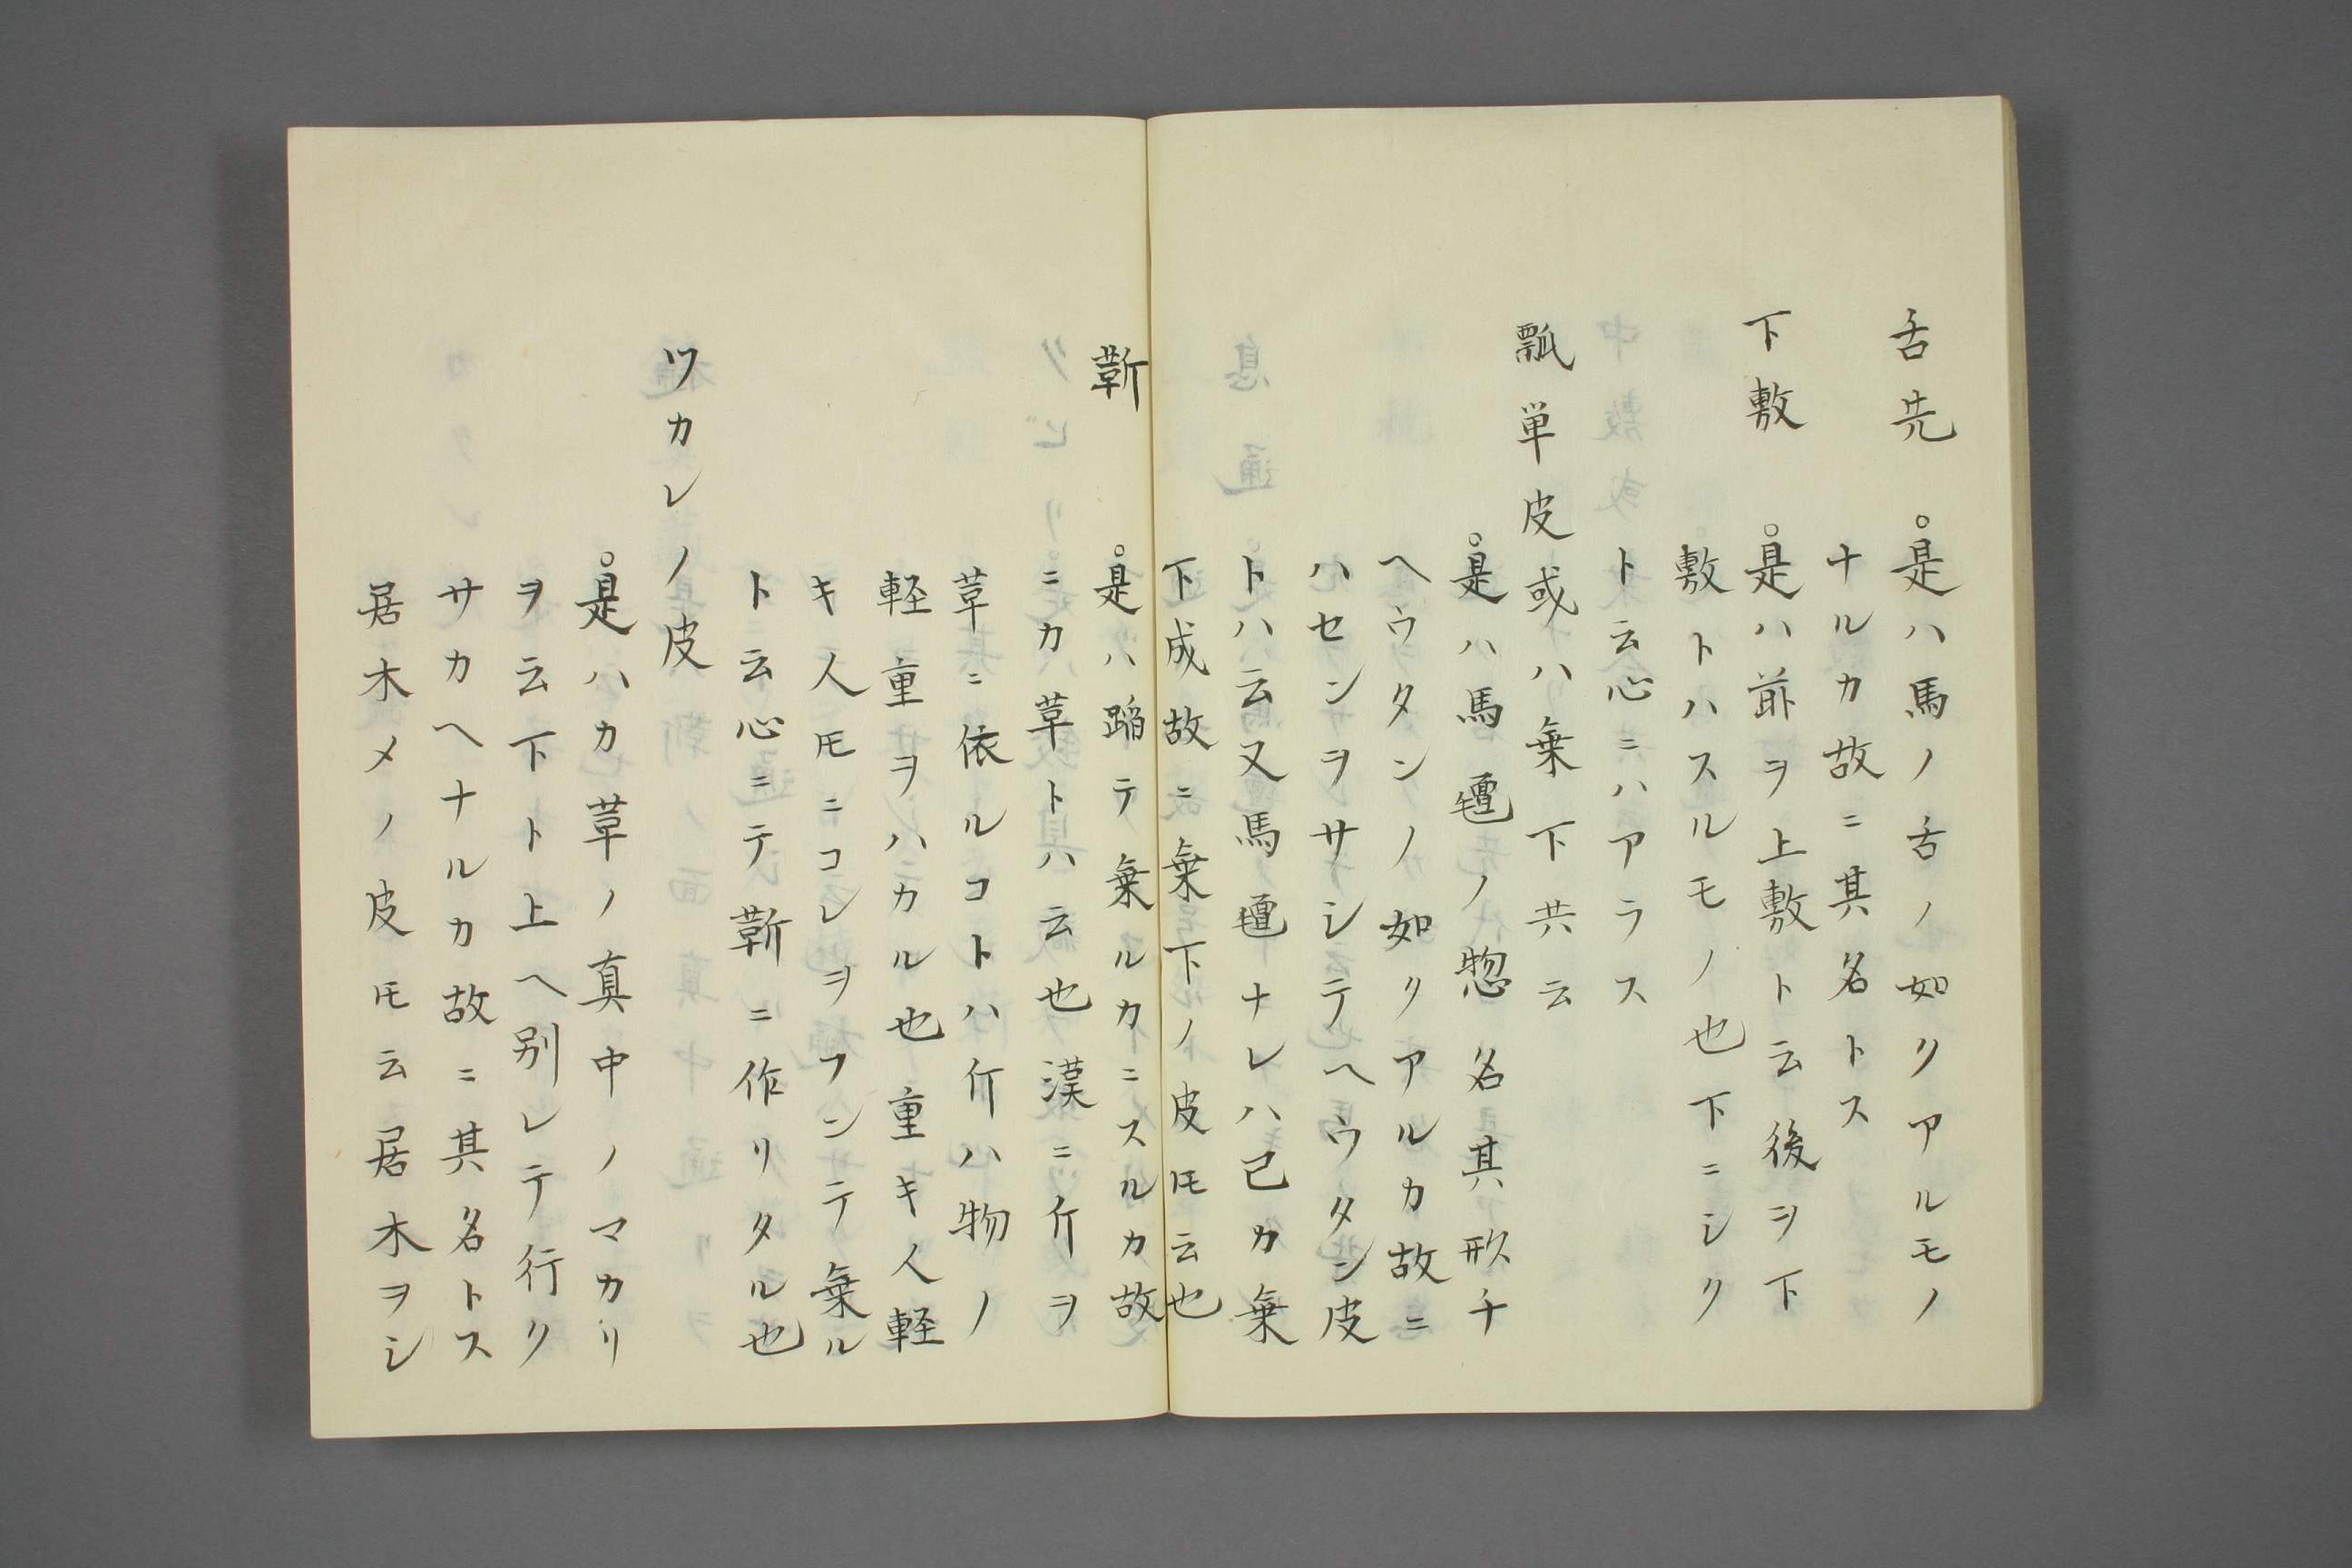 舌先 。是ハ馬ノ舌ノ如クアルモノ
ナルカ故ニ其名トス
下敷 。是ハ前ヲ上敷ト云後ヲ下
敷トハスルモノ也下ニシク
ト云心ニハアラス
瓢単皮或ハ乗下共云
。是ハ馬氊ノ惣名其形チ
ヘウタンノ如クアルカ故ニ
ハセンヲサシテヘウタン皮
トハ云又馬氊ナレハ己カ乗
下成故ニ乗下ノ皮ㇳモ云也
靳 。是ハ蹈テ乗ルカニスルカ故
ニカ革トハ云也漢ニ斤ヲ
革ニ依ルコトハ斤ハ物ノ
軽重ヲハカル也重キ人軽
キ人ㇳモニコレヲフンテ乗ル
ト云心ニテ靳ニ作リタル也
ワカレノ皮
。是ハカ革ノ真中ノマカリ
ヲ云下ト上ヘ別レテ行ク
サカヘナルカ故ニ其名トス
居木メノ皮ㇳモ云居木ヲシ